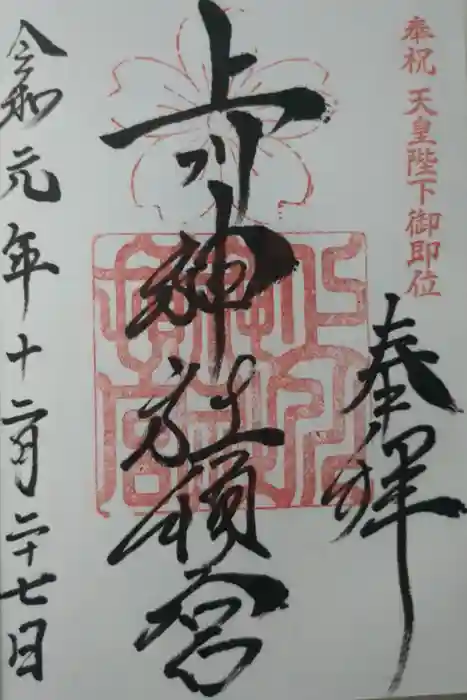 奉祝 天皇陛下御即位
奉拝
上川神社頓宮
令和元年十二月二十七日